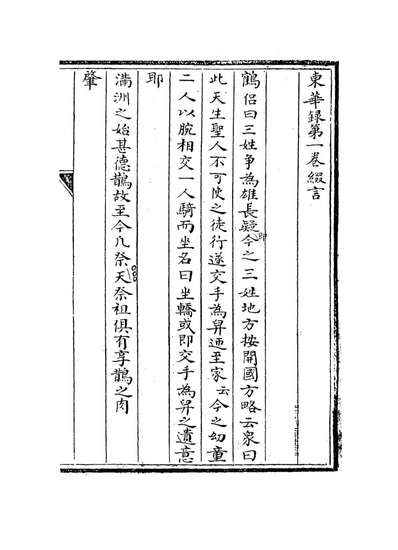 東華録第一卷綴言
鶴侣曰三姓争為雄長疑即今之三姓地方按開國方略云衆曰
此天生聖人不可使之徒行遂交手為舁迊至家云今之幼童
二人以腕相交一人騎而坐名曰坐轎或即交手為舁之遺意
耶
滿洲之始甚德鵲故至今凡祭天祭祖俱有享鵲之肉
肇